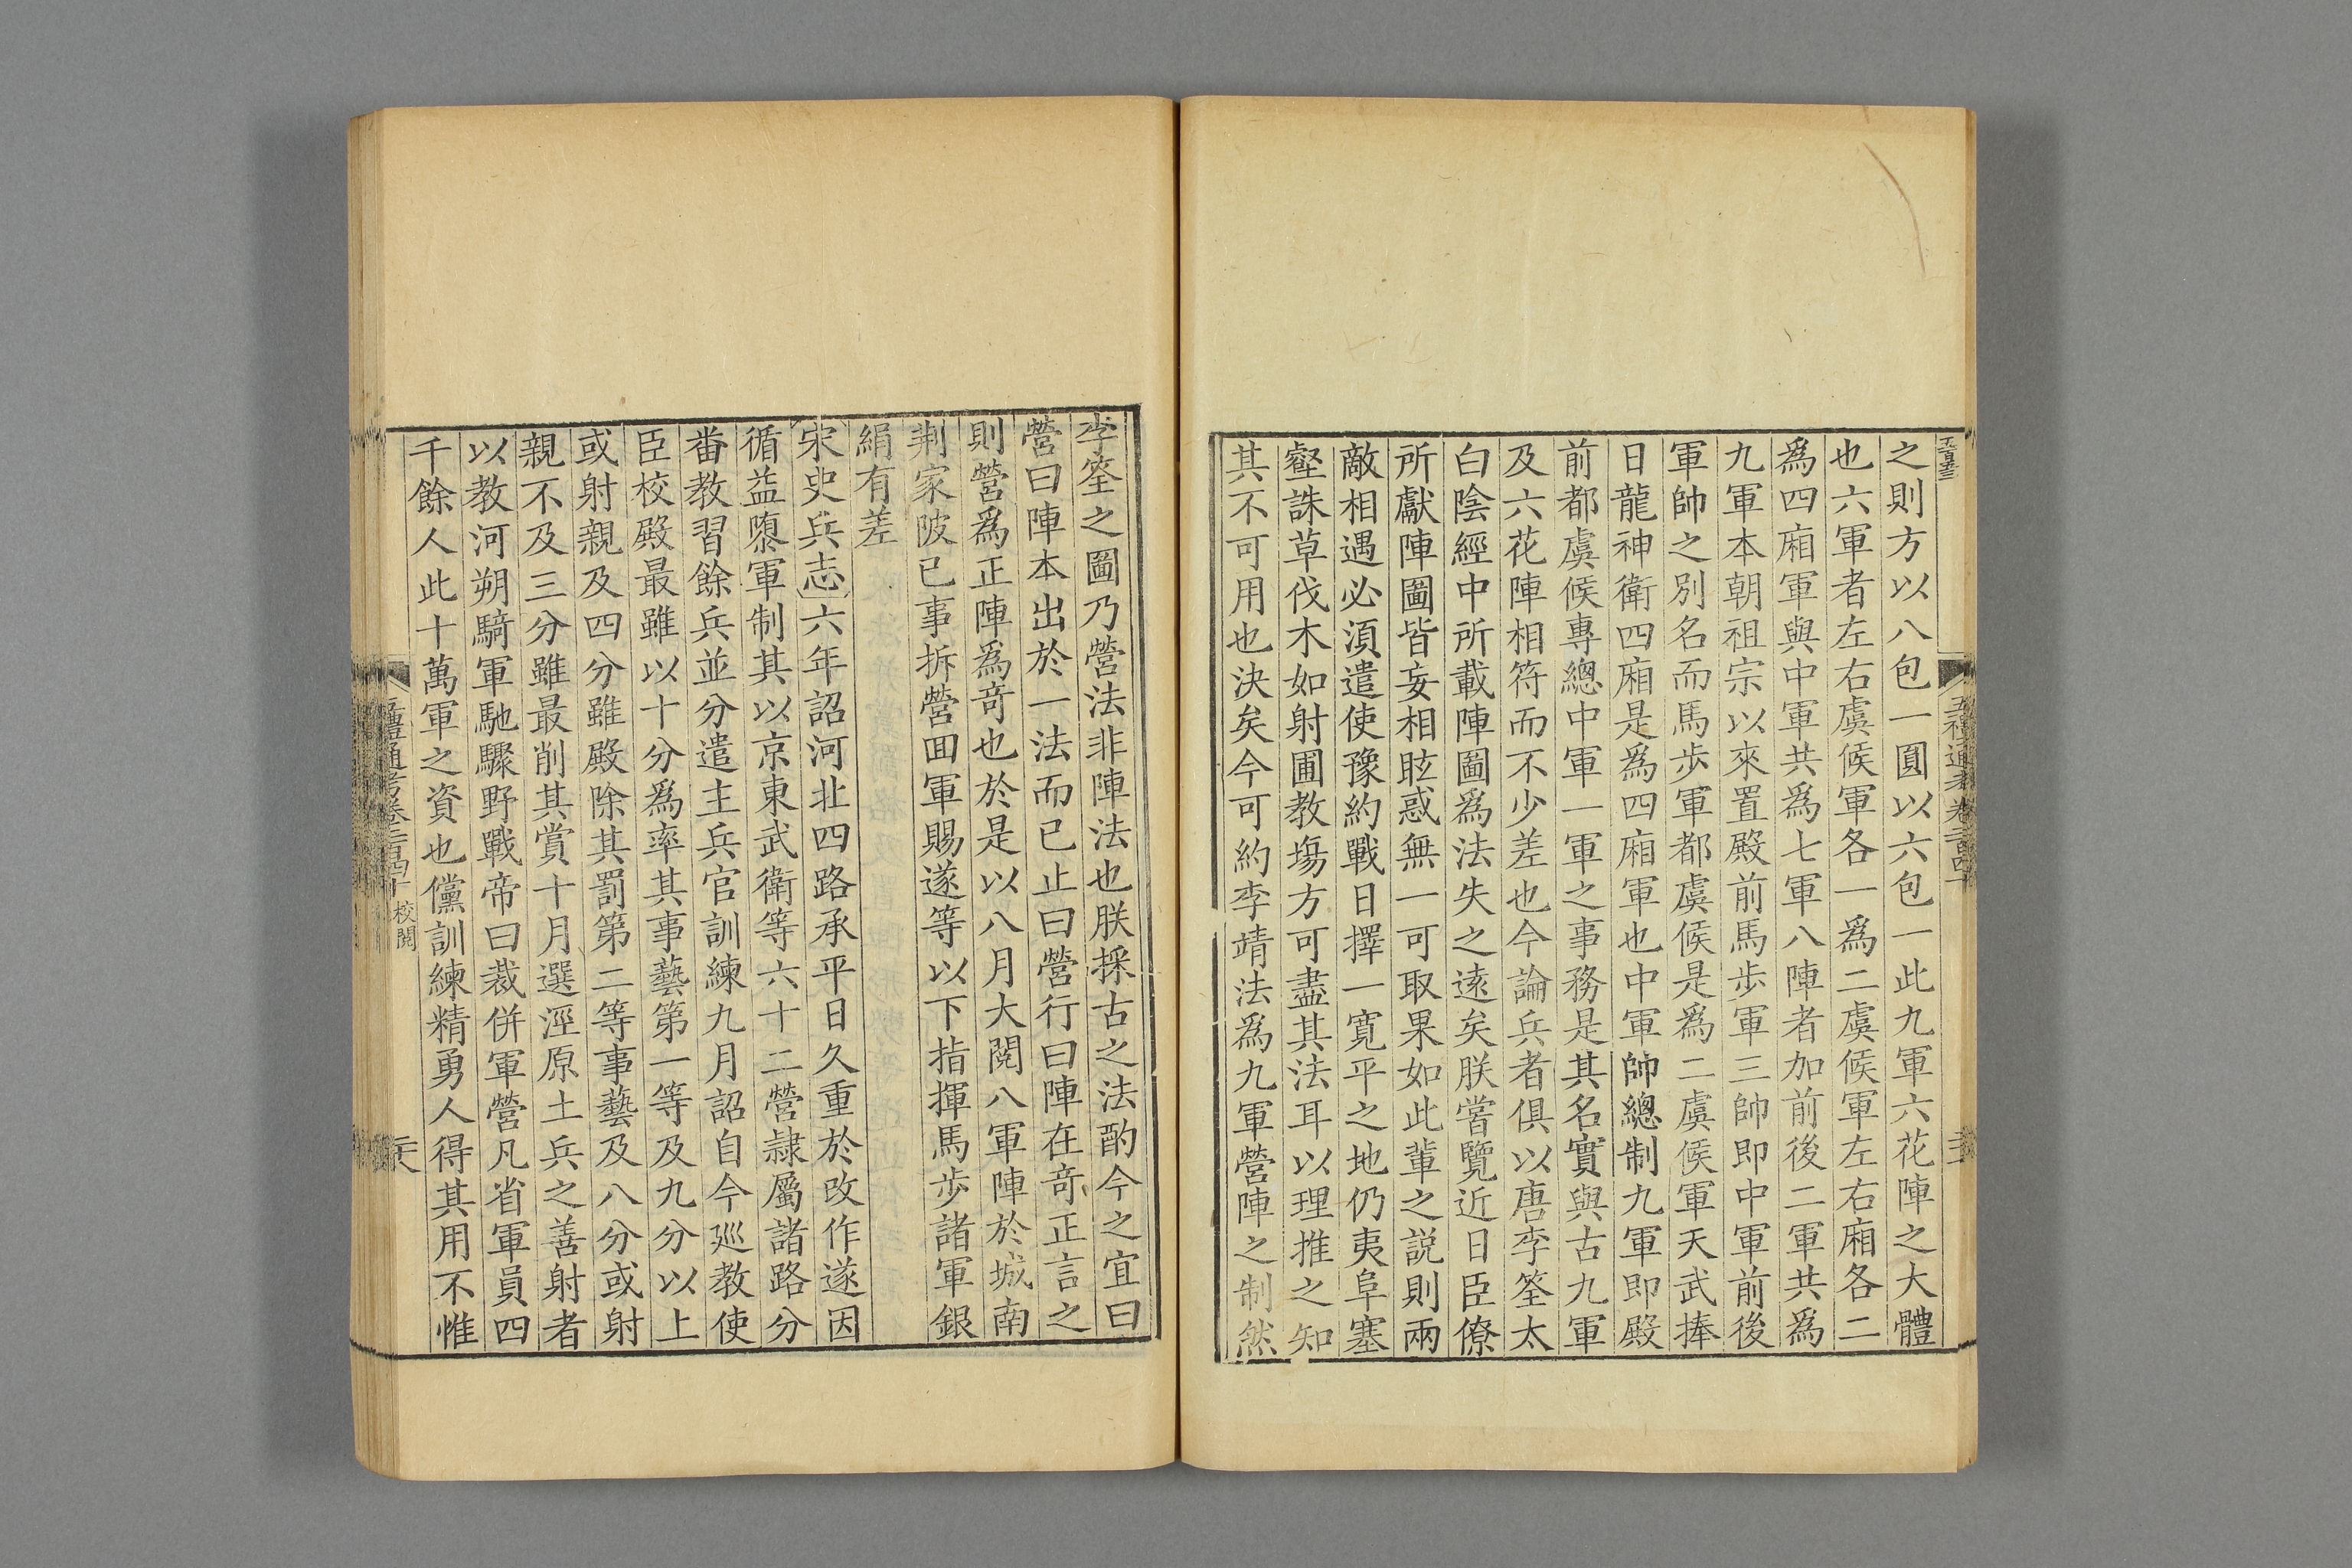 之則方以八包一圓以六包一此九軍六花陣之大體
也六軍者左右虞候軍各一爲二虞候軍左右廂各二
爲四廂軍與中軍共爲七軍八陣者加前後二軍共爲
九軍本朝祖宗以來置殿前馬步軍三帥即中軍前後
軍帥之別名而馬步軍都虞候是爲二虞候軍天武捧
日龍神衛四廂是爲四廂軍也中軍帥總制九軍即殿
前都虞候專總中軍一軍之事務是其名實與古九軍
及六花陣相符而不少差也今論兵者俱以唐李筌太
白陰經中所載陣圖爲法失之遠矣朕嘗覽近日臣僚
所獻陣圖皆妄相眩惑無一可取果如此輩之説則兩
敵相遇必湏遣使豫約戰日擇一寛平之地仍夷阜塞
壑誅草伐木如射圃教塲方可盡其法耳以理推之知
其不可用也決矣今可約李靖法爲九軍營陣之制然
李筌之圖乃營法非陣法也朕採古之法酌今之宜曰
營曰陣本出於一法而已止曰營行曰陣在奇正言之
則營爲正陣爲奇也於是以八月大閱八軍陣於城南
荆家陂已事拆營囬軍賜遂等以下指揮馬步諸軍銀
絹有差
宋史兵志六年詔河北四路承平日久重於改作遂因
循益隳軍制其以京東武衛等六十二營隷屬諸路分
番教習餘兵並分遣主兵官訓練九月詔自今廵教使
臣校殿最雖以十分爲率其事藝第一等及九分以上
或射親及四分雖殿除其罰第二等事藝及八分或射
親不及三分雖最削其賞十月選涇原土兵之善射者
以教河朔騎軍馳驟野戰帝曰裁併軍營凡省軍員四
千餘人此十萬軍之資也儻訓練精勇人得其用不惟
五禮通考卷二百四十 校閲